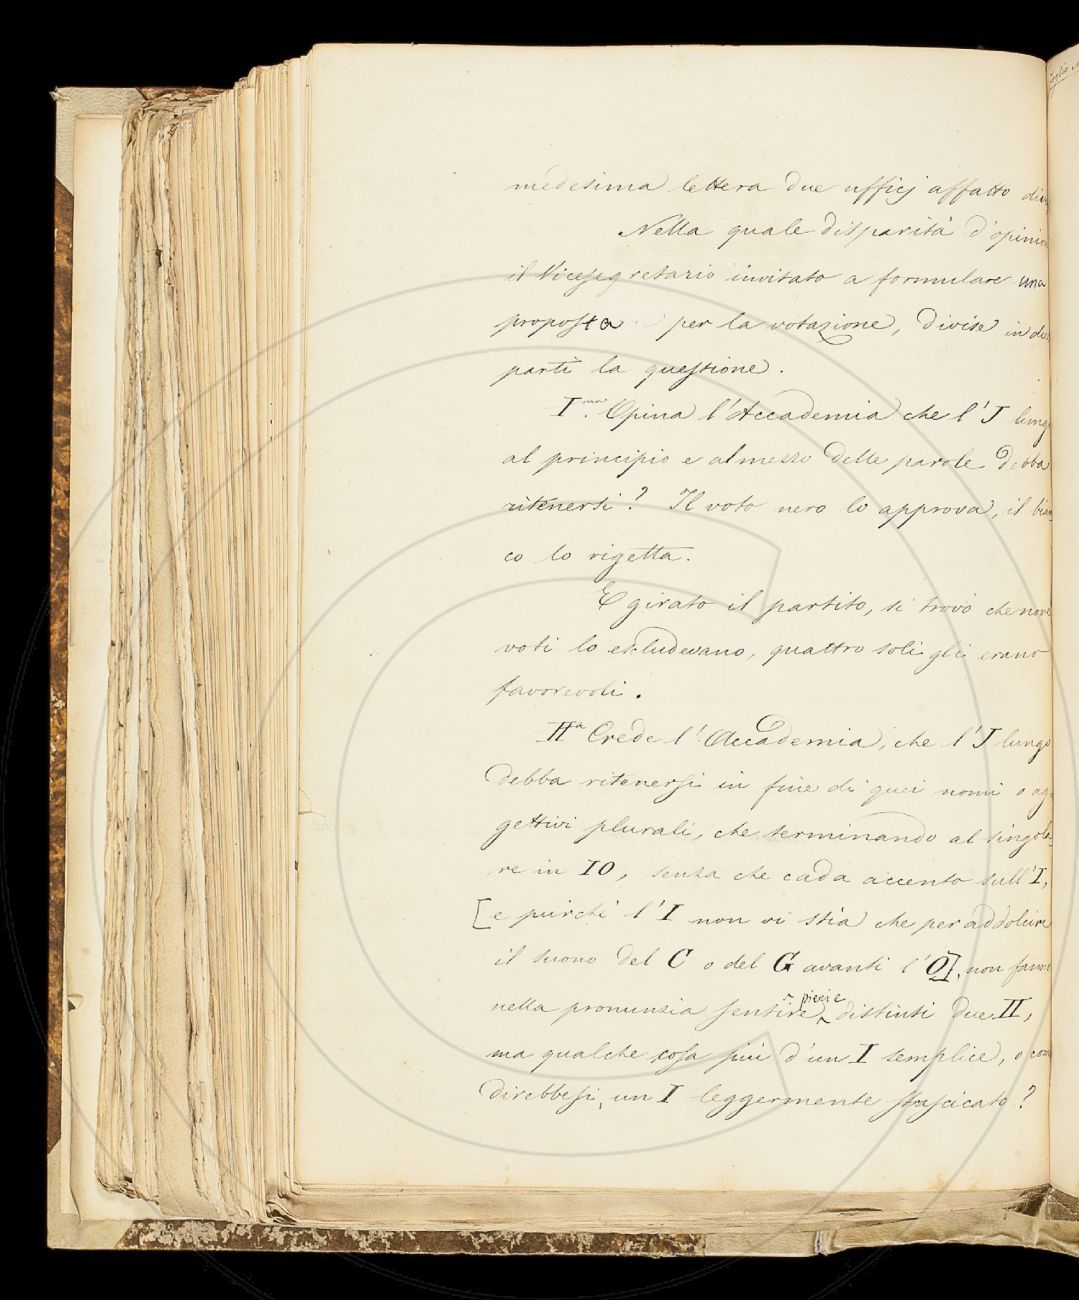 medesima lettera due ufficj affatto
Nella quale disparità d'opinio
il Vicesegretario invitato a formulare una
proposta per la votazione, divise in due
parti la questione.
I.ma Opina l'Accademia che l'J lungo
al principio e al mezzo delle parole debba
ritenersi? Il voto nero lo approva, il bian
co lo rigetta.
E girato il partito, si trovò che nove
voti lo escludevano, quattro soli gli erano
favorevoli.
IIa Crede l'Accademia, che l'J lungo
debba ritenersi in fine di quei nomi o ag
gettivi plurali, che terminando al singola
re in IO, senza che cada accento sull'I,
[e purchè l'I non vi stia che per addolcire
il suono del C o del G avanti l'O], non fanno
nella pronunzia sentire distinti due II,
ma qualche cosa più d'un I semplice, o come
direbbesi, un I leggermente strascicato?